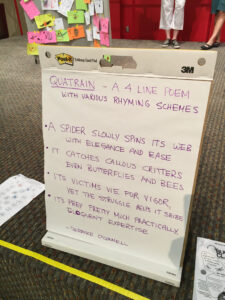 Post-it
3M
QUATRAIN - A 4 LINE POEM
WITH VARIOUS RHYMING SCHEMES
• A SPIDER SLOWLY SPINS ITS WEB
WITH ELEGANCE AND EASE
• IT CATCHES CALLOUS CRITTERS
EVEN BUTTERFLIES AND BEES
• ITS VICTIMS VIE FOR VIGOR,
YET THE STRUGGLE HELPS IT SEIZE
• ITS PREY PRETTY MUCH PRACTICALLY
EXPERTISE.